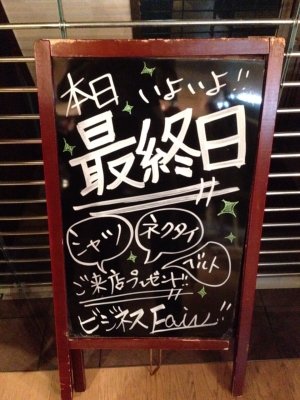 本日 いよいよ!!
最終日
シャツ
ネクタイ
ベルト
ご来店プレゼント!!
ビジネスFair!!